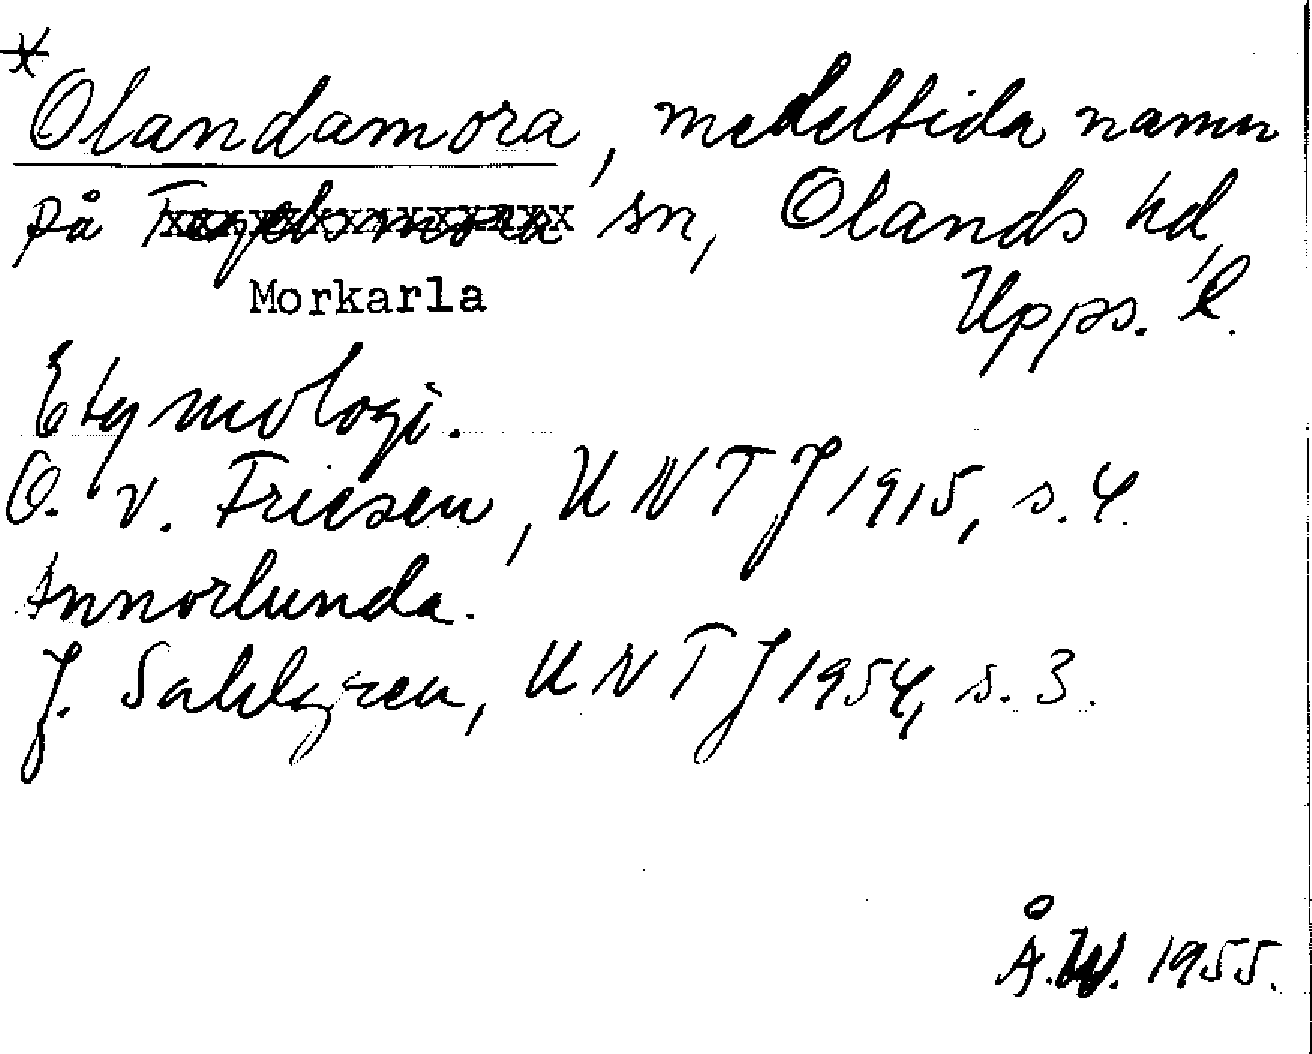 *
Olandamora, medeltida namn
på Tegelsmora sn, Olands hd,
Morkarla
Upps. l.
Etymologi.
O. v. Friesen, UNTJ 1915, s. 4.
Annorlunda.
J. Sahlgren, UNTJ 1954, s. 3.
Å.W. 1955.